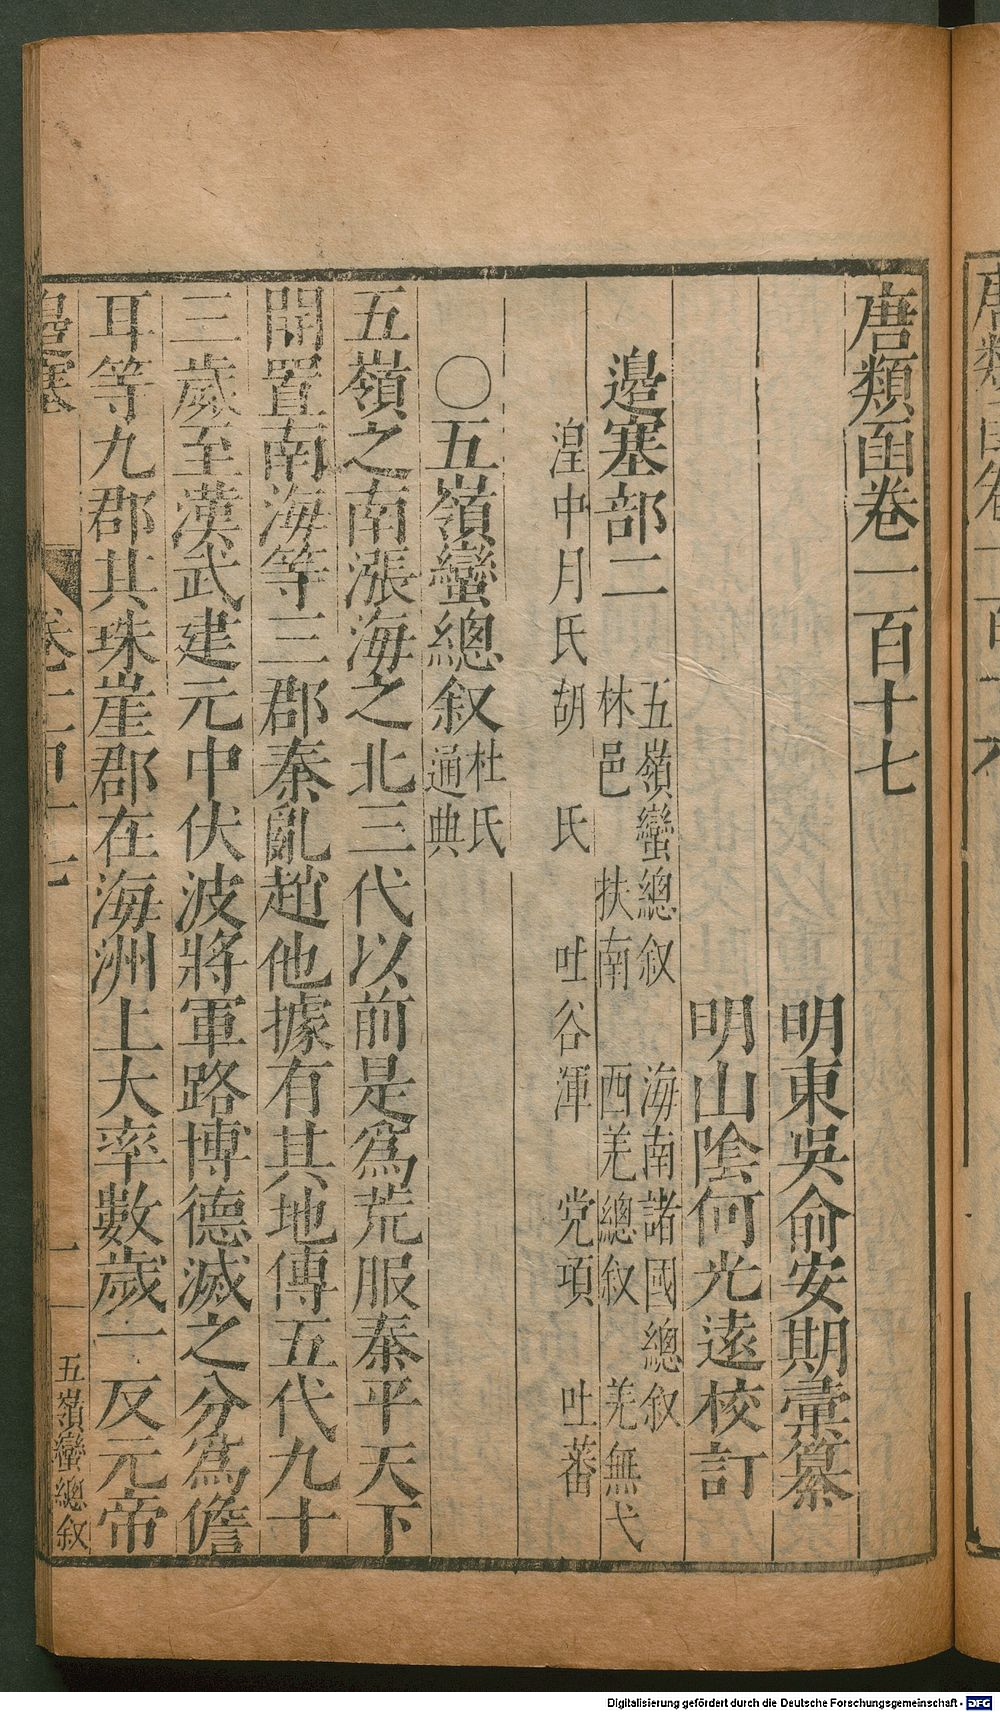 唐類函卷一百十七
明東吳俞安期彙纂
明山陰何光遠校訂
邊塞部二
五嶺蠻總叙 海南諸國總叙
林邑 扶南 西羌總叙 羌無弋
湟中月氏胡 氐 吐谷渾 党項 吐蕃
〇五嶺蠻總叙 杜氏通典
五嶺之南漲海之北三代以前是爲荒服秦平天下
開置南海等三郡秦亂趙他據有其地傳五代九十
三歲至漢武建元中伏波將軍路博德滅之分爲儋
耳等九郡其珠崖郡在海洲上大率數歲一反元帝
邊塞 卷一百十七 一 五嶺蠻總叙
Digitalisierung gefördert durch die Deutsche Forschungsgemeinschaft - DFG